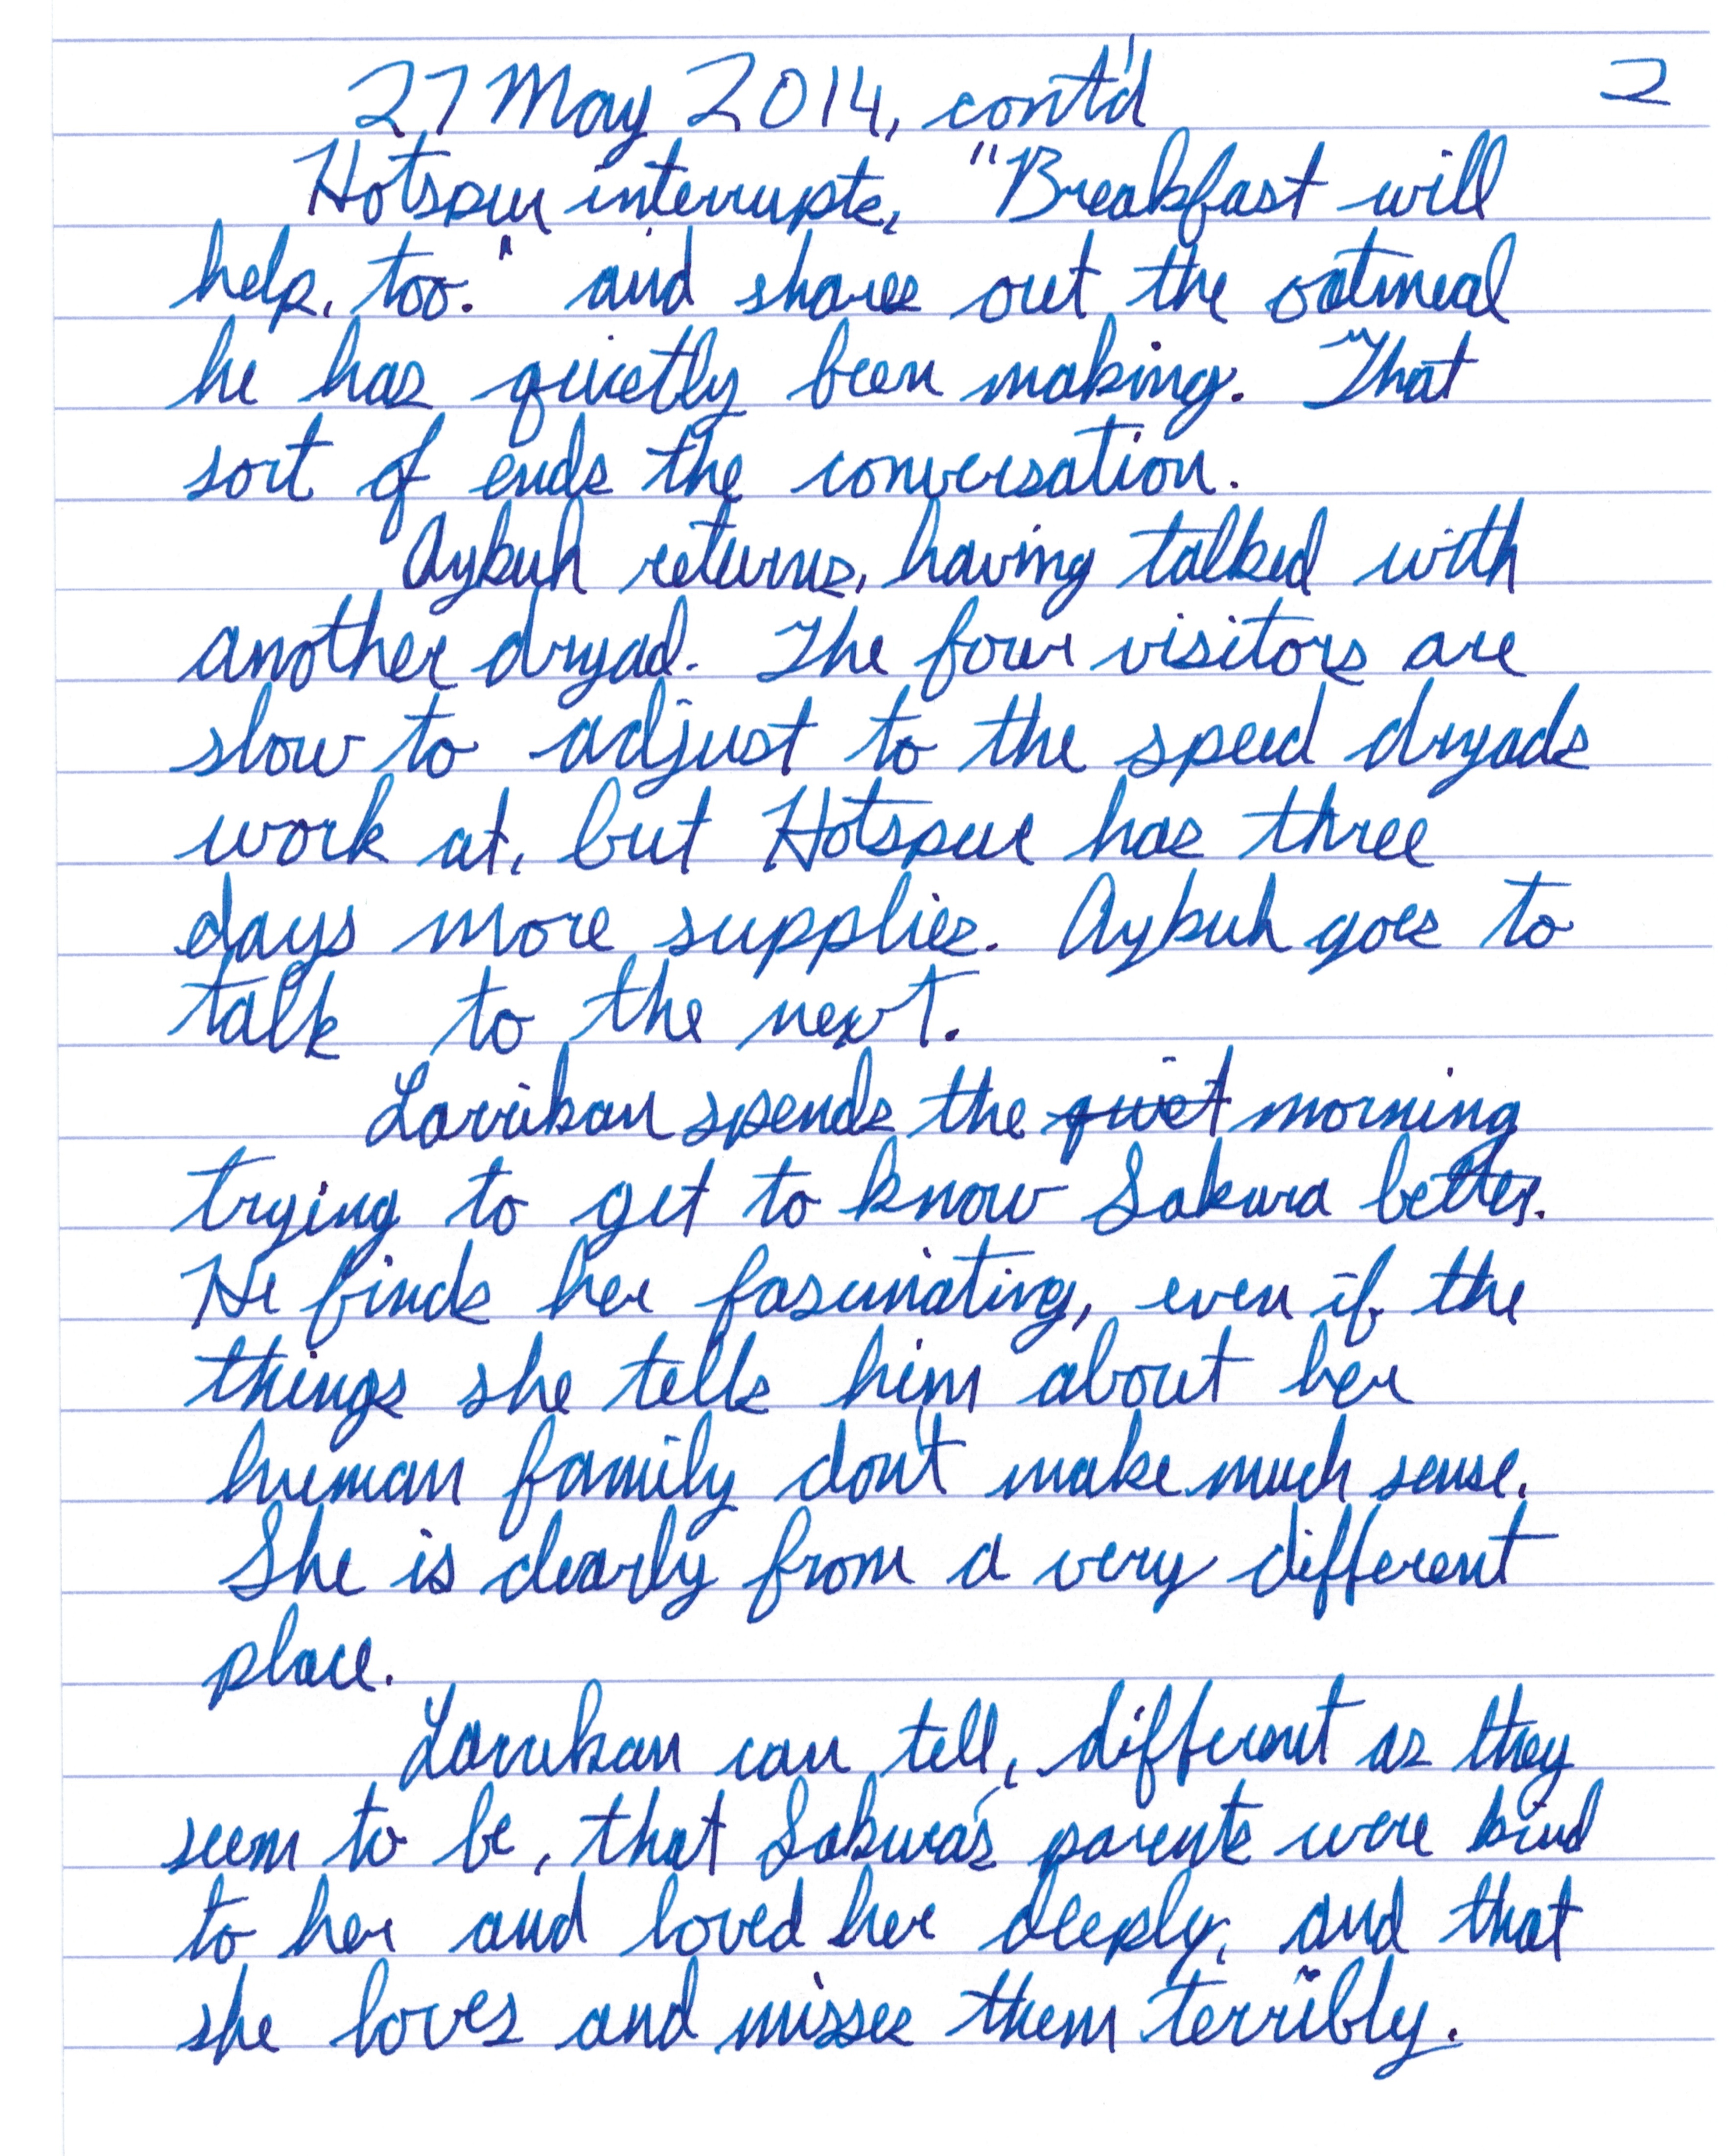 27 May 2014, cont'd 2
Hotspur interrupts, "Breakfast will
help, too." and shares out the oatmeal
he has quietly been making. That
sort of ends the conversation.
Aybuh returns, having talked with
another dryad. The four visitors are
slow to adjust to the speed dryads
work at, but Hotspur has three
days more supplies. Aybuh goes to
talk to the next.
Larrikan spends the quiet morning
trying to get to know Sakura better.
He finds her fascinating, even if the
things she tells him about her
human family don't make much sense.
She is clearly from a very different
place.
Larrikan can tell, different as they
seem to be, that Sakura's parents were kind
to her and loved her deeply, and that
she loves and misses them terribly.